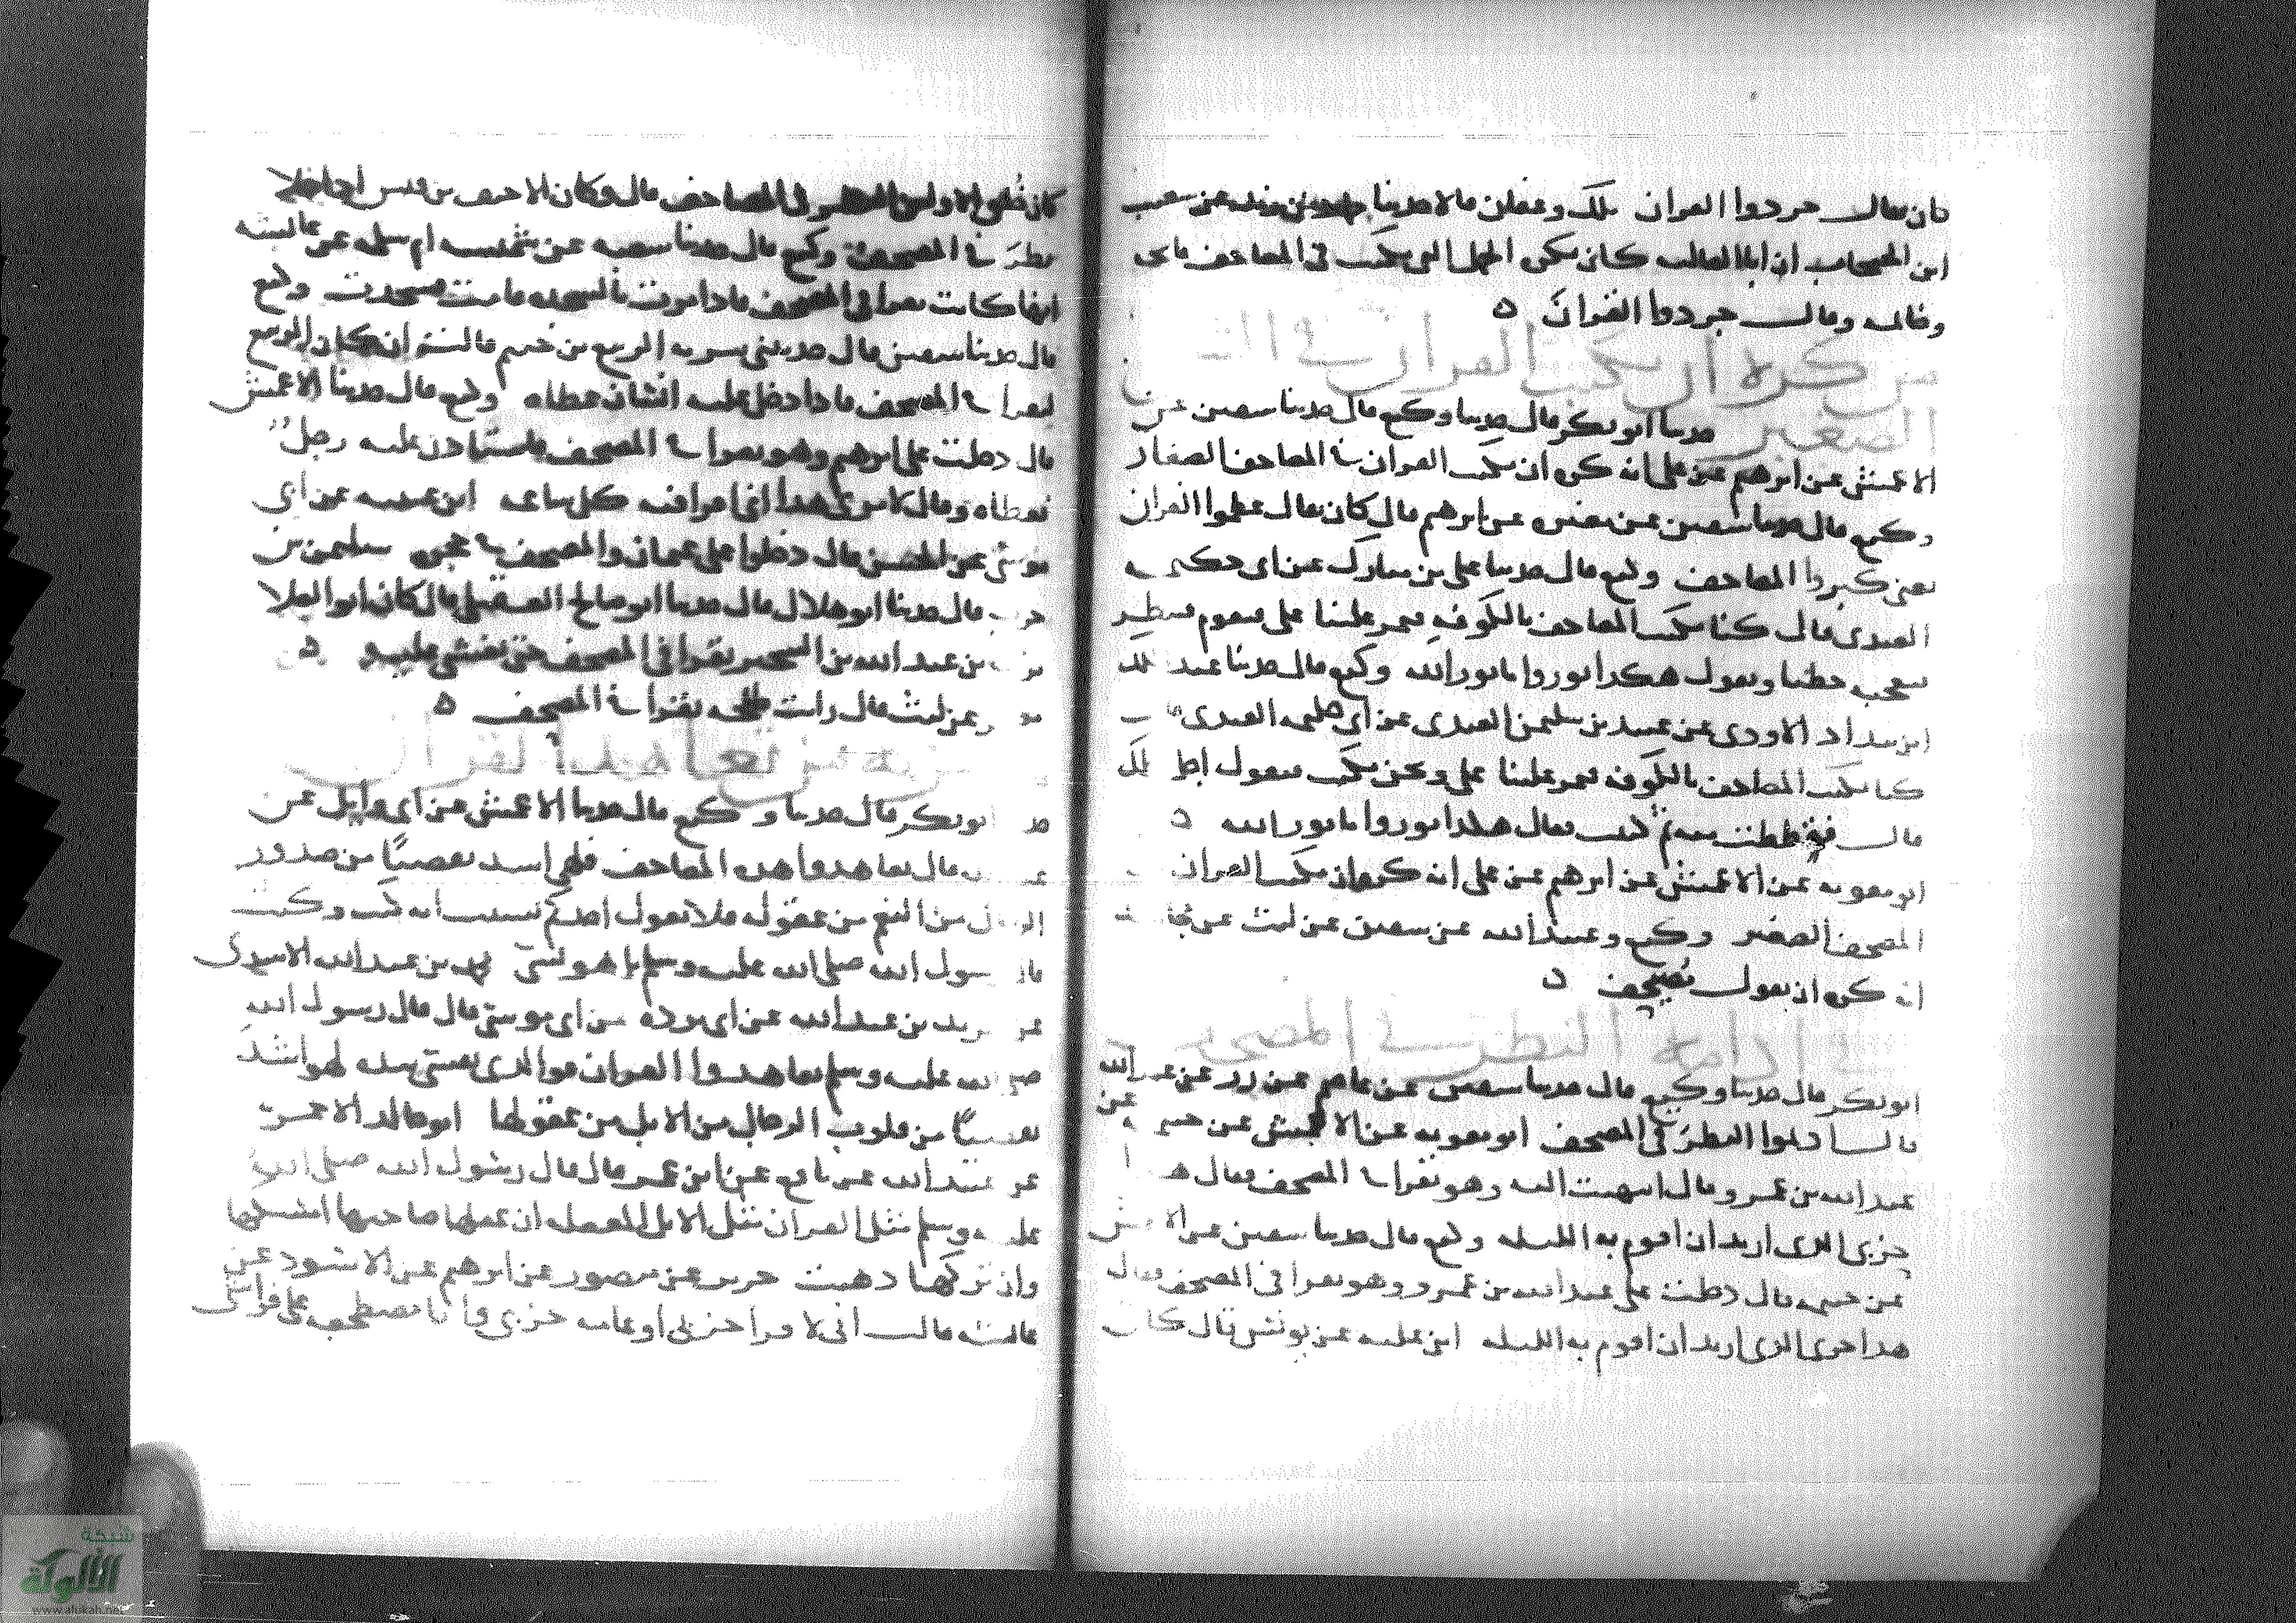 كان يقال جردوا القران ملك وعفان قالا حدثنا حماد بن زيد عن شعيب
ابن الحبحاب ان ابا العاليه كان يكره الجمل التي تكتب في المصاحف فاتحه
وخاتمه وقال جردوا القران ه
من كره ان يكتب القران في الشي
الصغير حدثنا ابو بكر قال حدثنا وكيع قال حدثنا سفين عن
الاعمش عن ابرهيم عن علي انه كره ان يكتب القران في المصاحف الصغار
وكيع قال حدثنا سفين عن مغيره عن ابرهيم قال كان يقال عظموا القران
يعني كبروا المصاحف وكيع قال حدثنا علي بن مبارك عن ابي حكيمه
العبدي قال كنا نكتب المصاحف بالكوفه فيمر علينا علي فيقوم فينظر
فيعجبه خطنا ويقول هكذا نوروا ما نور الله وكيع قال حدثنا عبد الملك
ابن شداد الاودي عن عبيد بن سليمن العبدي عن ابي حكيمه العبدي
كنا نكتب المصاحف بالكوفه فيمر علينا علي ونحن نكتب فيقول اجل قلمك
قال فقططت منه ثم كتبت فقال هكذا نوروا ما نور الله ه
ابو معويه عن الاعمش عن ابرهيم عن علي انه كره ان يكتب القران
المصحف الصغير وكيع وعبيد الله عن سفين عن ليث عن مجاهد
انه كره ان يقول مصيحف ه
في ادامه النظر في المصحف
ابو بكر قال حدثنا وكيع قال حدثنا سفين عن عاصم عن زر عن عبد الله
قال اديموا النظر في المصحف ابو معويه عن الاعمش عن خيثمه عن
عبد الله بن عمرو قال انتهيت اليه وهو يقرا في المصحف فقال هذا
حزبي الذي اريد ان اقوم به الليله وكيع قال حدثنا سفين عن الاعمش
عن خيثمه قال دخلت على عبد الله بن عمرو وهو يقرا في المصحف فقال
هذا حزبي الذي اريد ان اقوم به الليله ابن عليه عن يونس قال كان
كان خلق الاولين النظر في المصاحف قال وكان الاحنف بن قيس اذا خلا
نظر في المصحف وكيع قال حدثنا شعبه عن شميسه ام سلمه عن عائشه
انها كانت تقرا في المصحف فاذا مرت بالسجده قامت فسجدت وكيع
قال حدثنا سفين قال حدثتني سريه الربيع بن خثيم قالت ان كان الربيع
ليقرا في المصحف فاذا دخل عليه انسان غطاه وكيع قال حدثنا الاعمش
قال دخلت على ابرهيم وهو يقرا في المصحف فاستاذن عليه رجل
فغطاه وقال لا يرى هذا اني اقرا فيه كل ساعه ابن عيينه عن ابي
موسى عن الحسن قال دخلوا على عثمان والمصحف في حجره سليمن بن
حرب قال حدثنا ابو هلال قال حدثنا ابو صالح العقيلي قال كان ابو العلا
بن عبد الله بن الشخير يقرا في المصحف حتى يغشى عليه ه
عن ليث قال رايت طلحه يقرا في المصحف ه
في تعاهد القران
ابو بكر قال حدثنا وكيع قال حدثنا الاعمش عن ابي وايل عن
قال تعاهدوا هذه المصاحف فلهي اشد تفصيا من صدور
الرجال من النعم من عقوله فلا يقول احدكم نسيت ايه كيت وكيت
قال رسول الله صلى الله عليه وسلم بل هو نسي محمد بن عبد الله الاسدي
عن بريد بن عبد الله عن ابي برده عن ابي موسى قال قال رسول الله
صلى الله عليه وسلم تعاهدوا القران فوالذي نفسي بيده لهو اشد
تفصيا من قلوب الرجال من الابل من عقولها ابو خالد الاحمر
عن عبيد الله عن نافع عن ابن عمر قال قال رسول الله صلى الله
عليه وسلم مثل القران مثل الابل المعقله ان عقلها صاحبها امسكها
وان تركها ذهبت جرير عن منصور عن ابرهيم عن الاسود عن
عائشه قالت اني لا قرا حزبي او عامه حزبي وانا مضطجعه على فراشي
شبكة
الألوكة
www.alukah.net